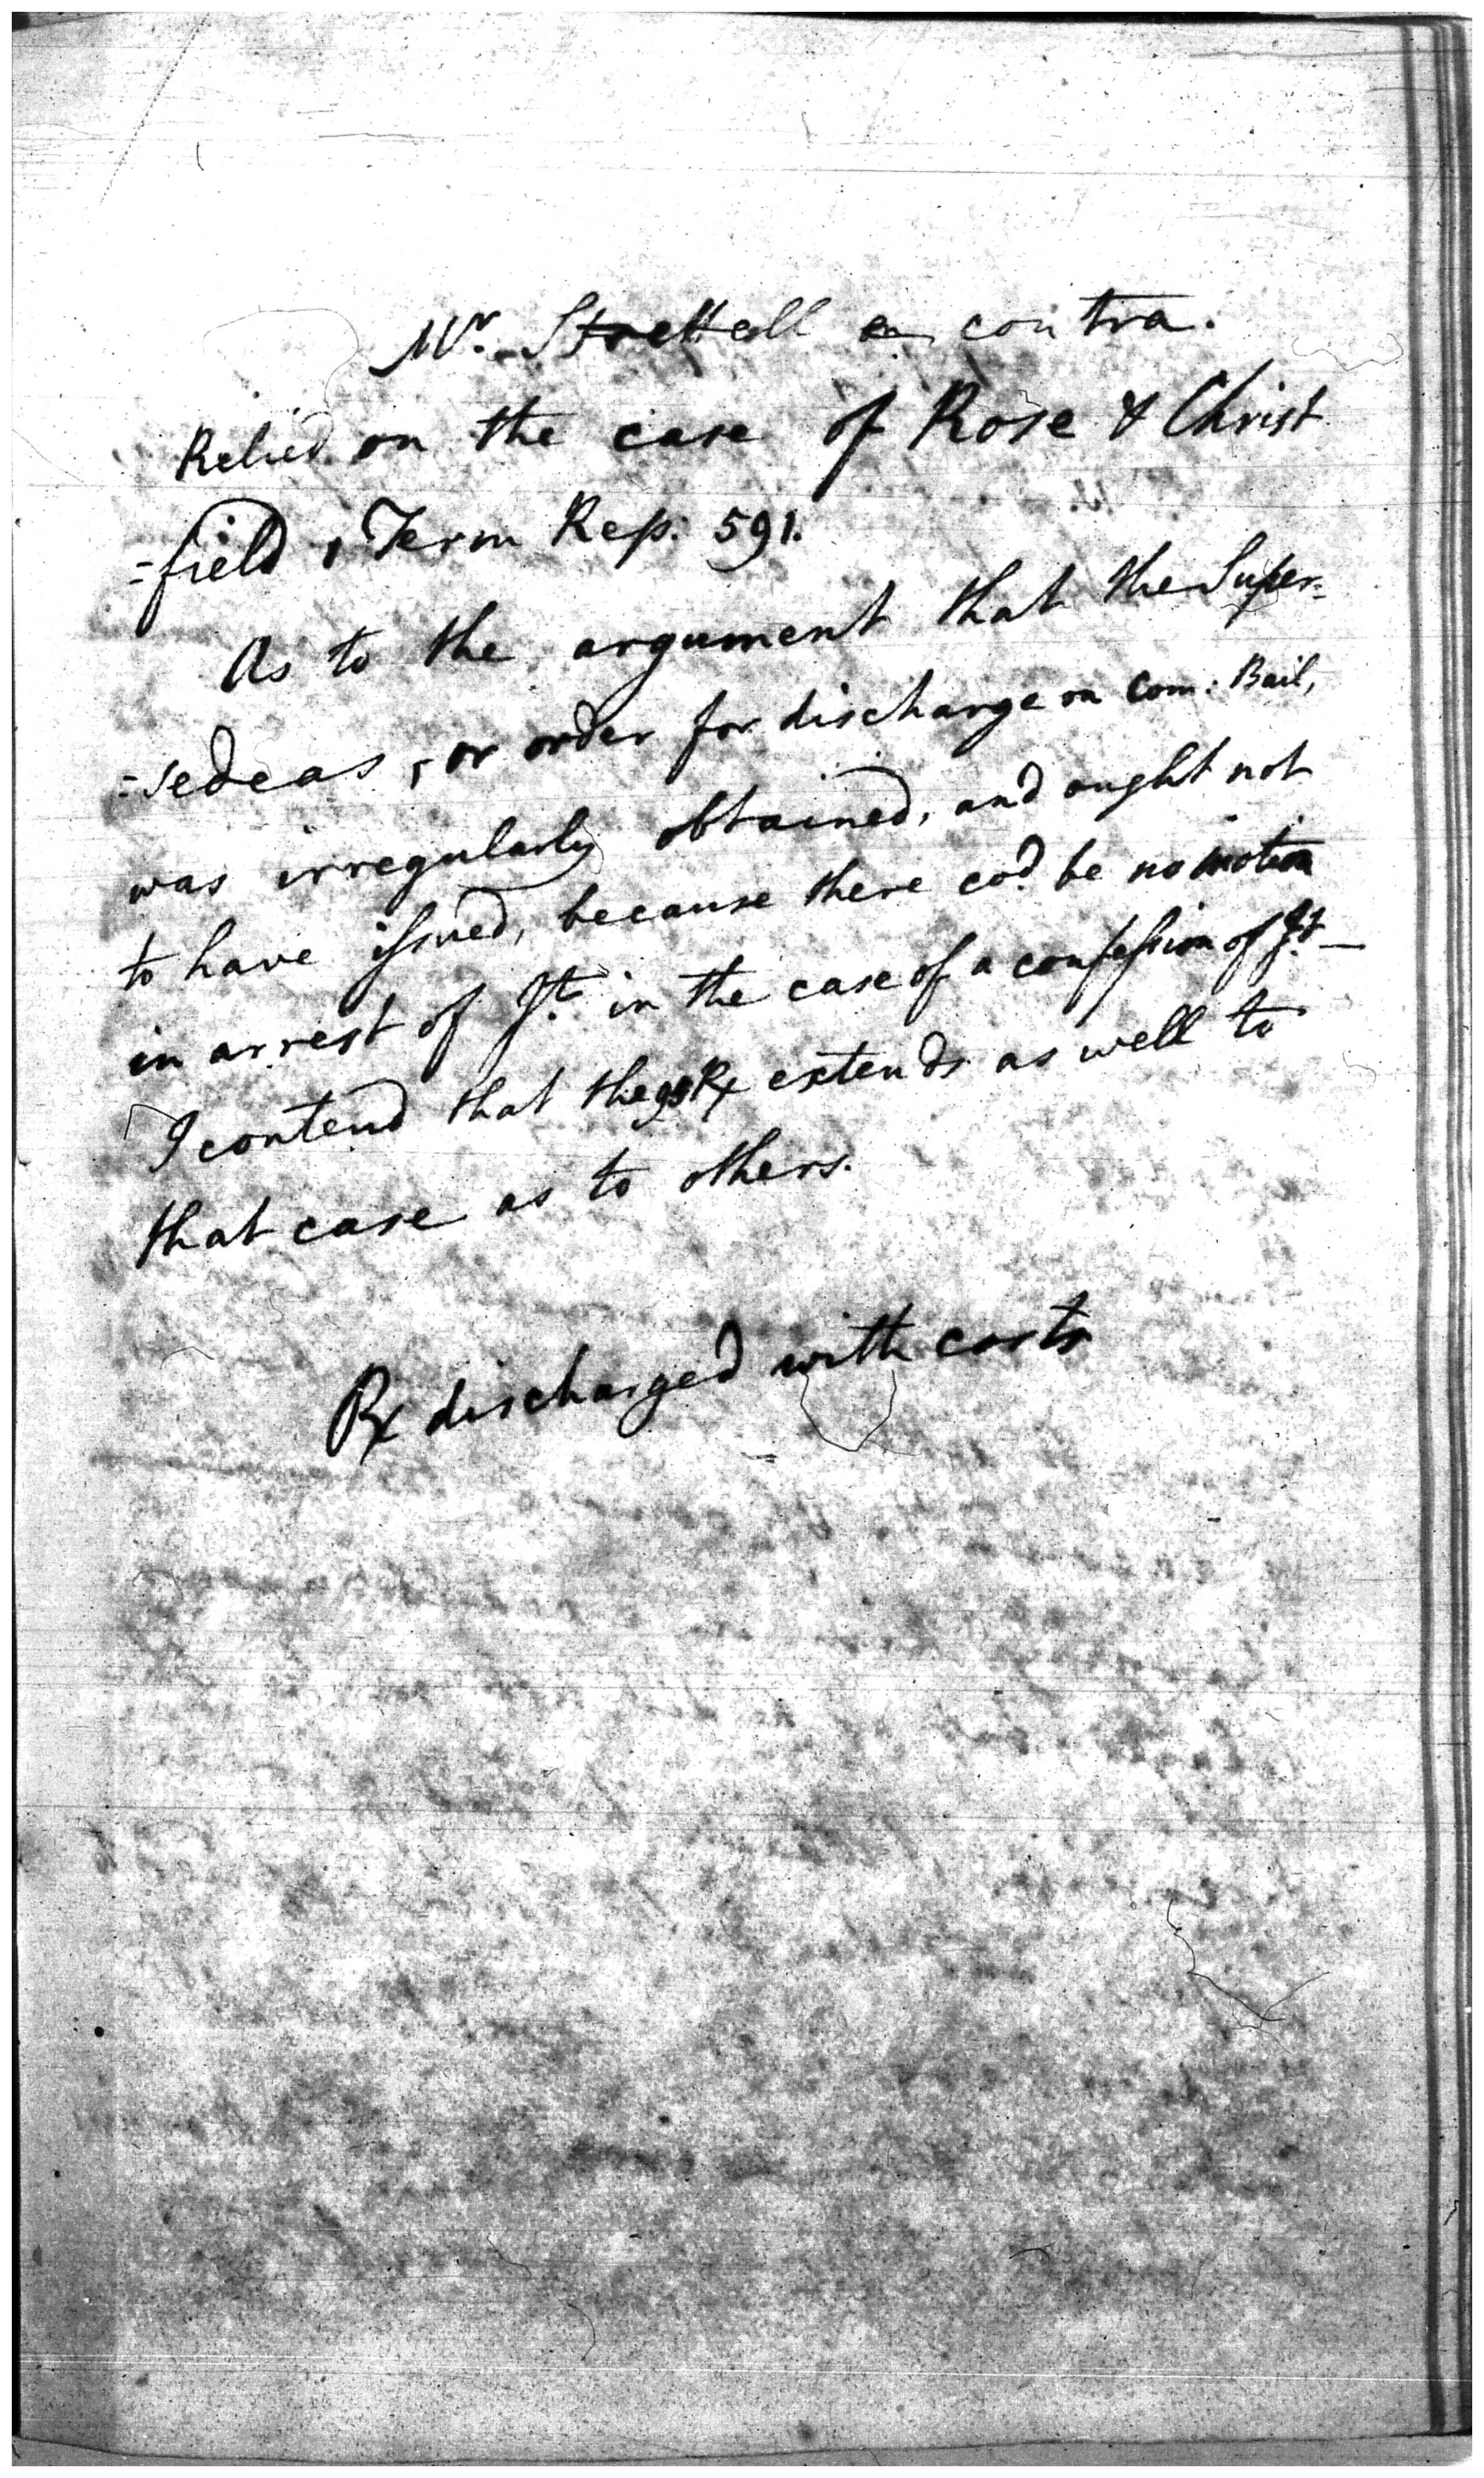 Mr. Strettell e contra.
Relied on the case of Rose & Christ
=field, 1 Term Rep: 591.
As to the argument that the Super=
=sedeas, or order for discharge on Com: Bail,
was irregularly obtained, and ought not
to have issued, because there cod. be no motion
in arrest of Jt. in the case of a confession of Jt. —
I contend that the Rx extends as well to
that case as to others.
Rx discharged with costs